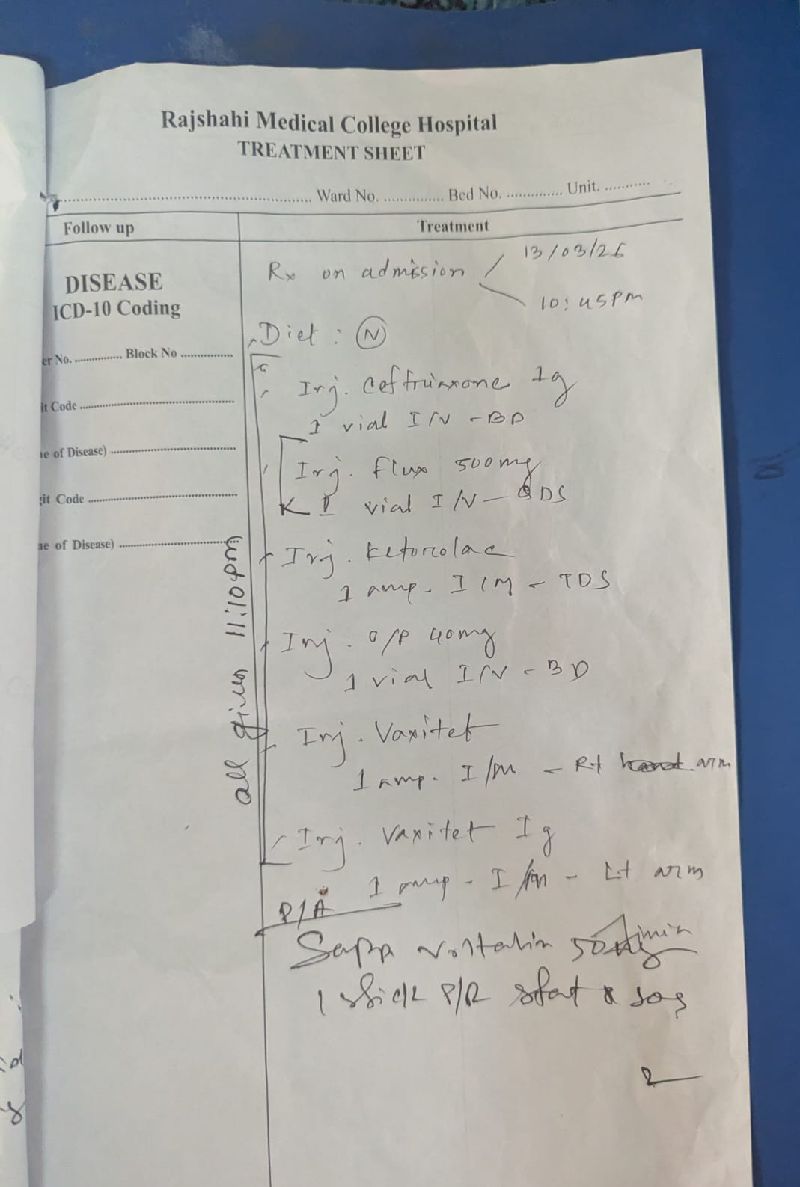 Rajshahi Medical College Hospital
TREATMENT SHEET
Ward No. Bed No. Unit.
Follow up
Treatment
DISEASE
ICD-10 Coding
er No. Block No
it Code
e of Disease)
git Code
e of Disease)
Rx on admission 13/03/26
10:45pm
Diet: N
Inj. Ceftriaxone 1g
1 vial I/V - BD
Inj. flux 500mg
vial I/V - QDS
Inj. Ketorolac
1 amp. I/M - TDS
Inj. O/P 40mg
1 vial I/V - BD
Inj. Vaxitet
1 amp. I/M - Rt arm
Inj. Vaxitet Ig
1 amp - I/M - Lt arm
all given 11:10pm
Supp Voltalin 50mg
1 stick P/R stat & sos